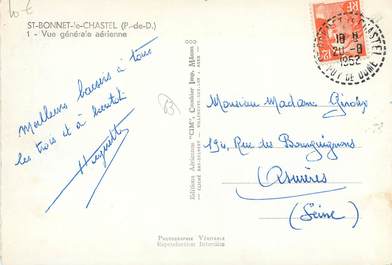 10 €
ST-BONNET-le-CHASTEL (P.-de-D.)
1 - Vue générale aérienne
Meilleurs baisers à tous
les trois et à bientôt
Huguette
Editions Aériennes "CIM", Combier Imp. Mâcon
Photographie Véritable
Reproduction Interdite
18 H
20 -8
1952
PUY DE DOME
RF
Monsieur Madame
194, Rue des Bourguignons
Asnières
(Seine)